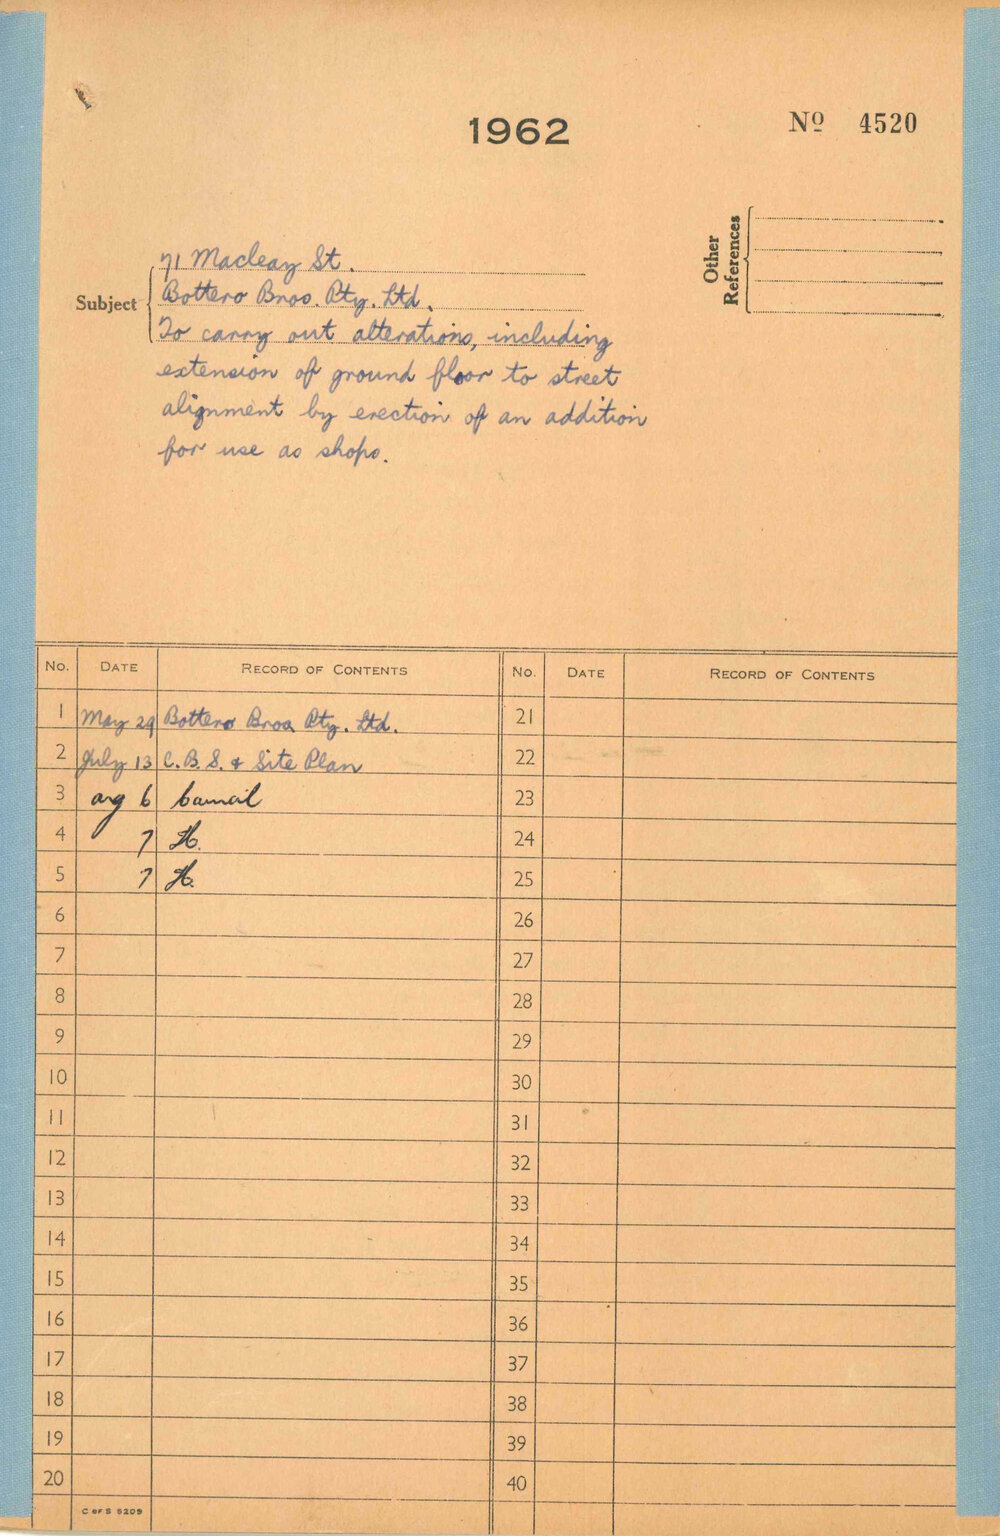 1962
Nº 4520
Other References
Subject
71 Macleay St.
Bottero Bros. Pty. Ltd.
To carry out alterations, including
extension of ground floor to street
alignment by erection of an addition
for use as shops.
No. DATE RECORD OF CONTENTS No. DATE RECORD OF CONTENTS
1 May 29 Bottero Bros Pty. Ltd. 21
2 July 13 C.B.S. & Site Plan 22
3 aug 6 Council 23
4 7 H. 24
5 7 H. 25
6 26
7 27
8 28
9 29
10 30
11 31
12 32
13 33
14 34
15 35
16 36
17 37
18 38
19 39
20 40
C OF S 5209